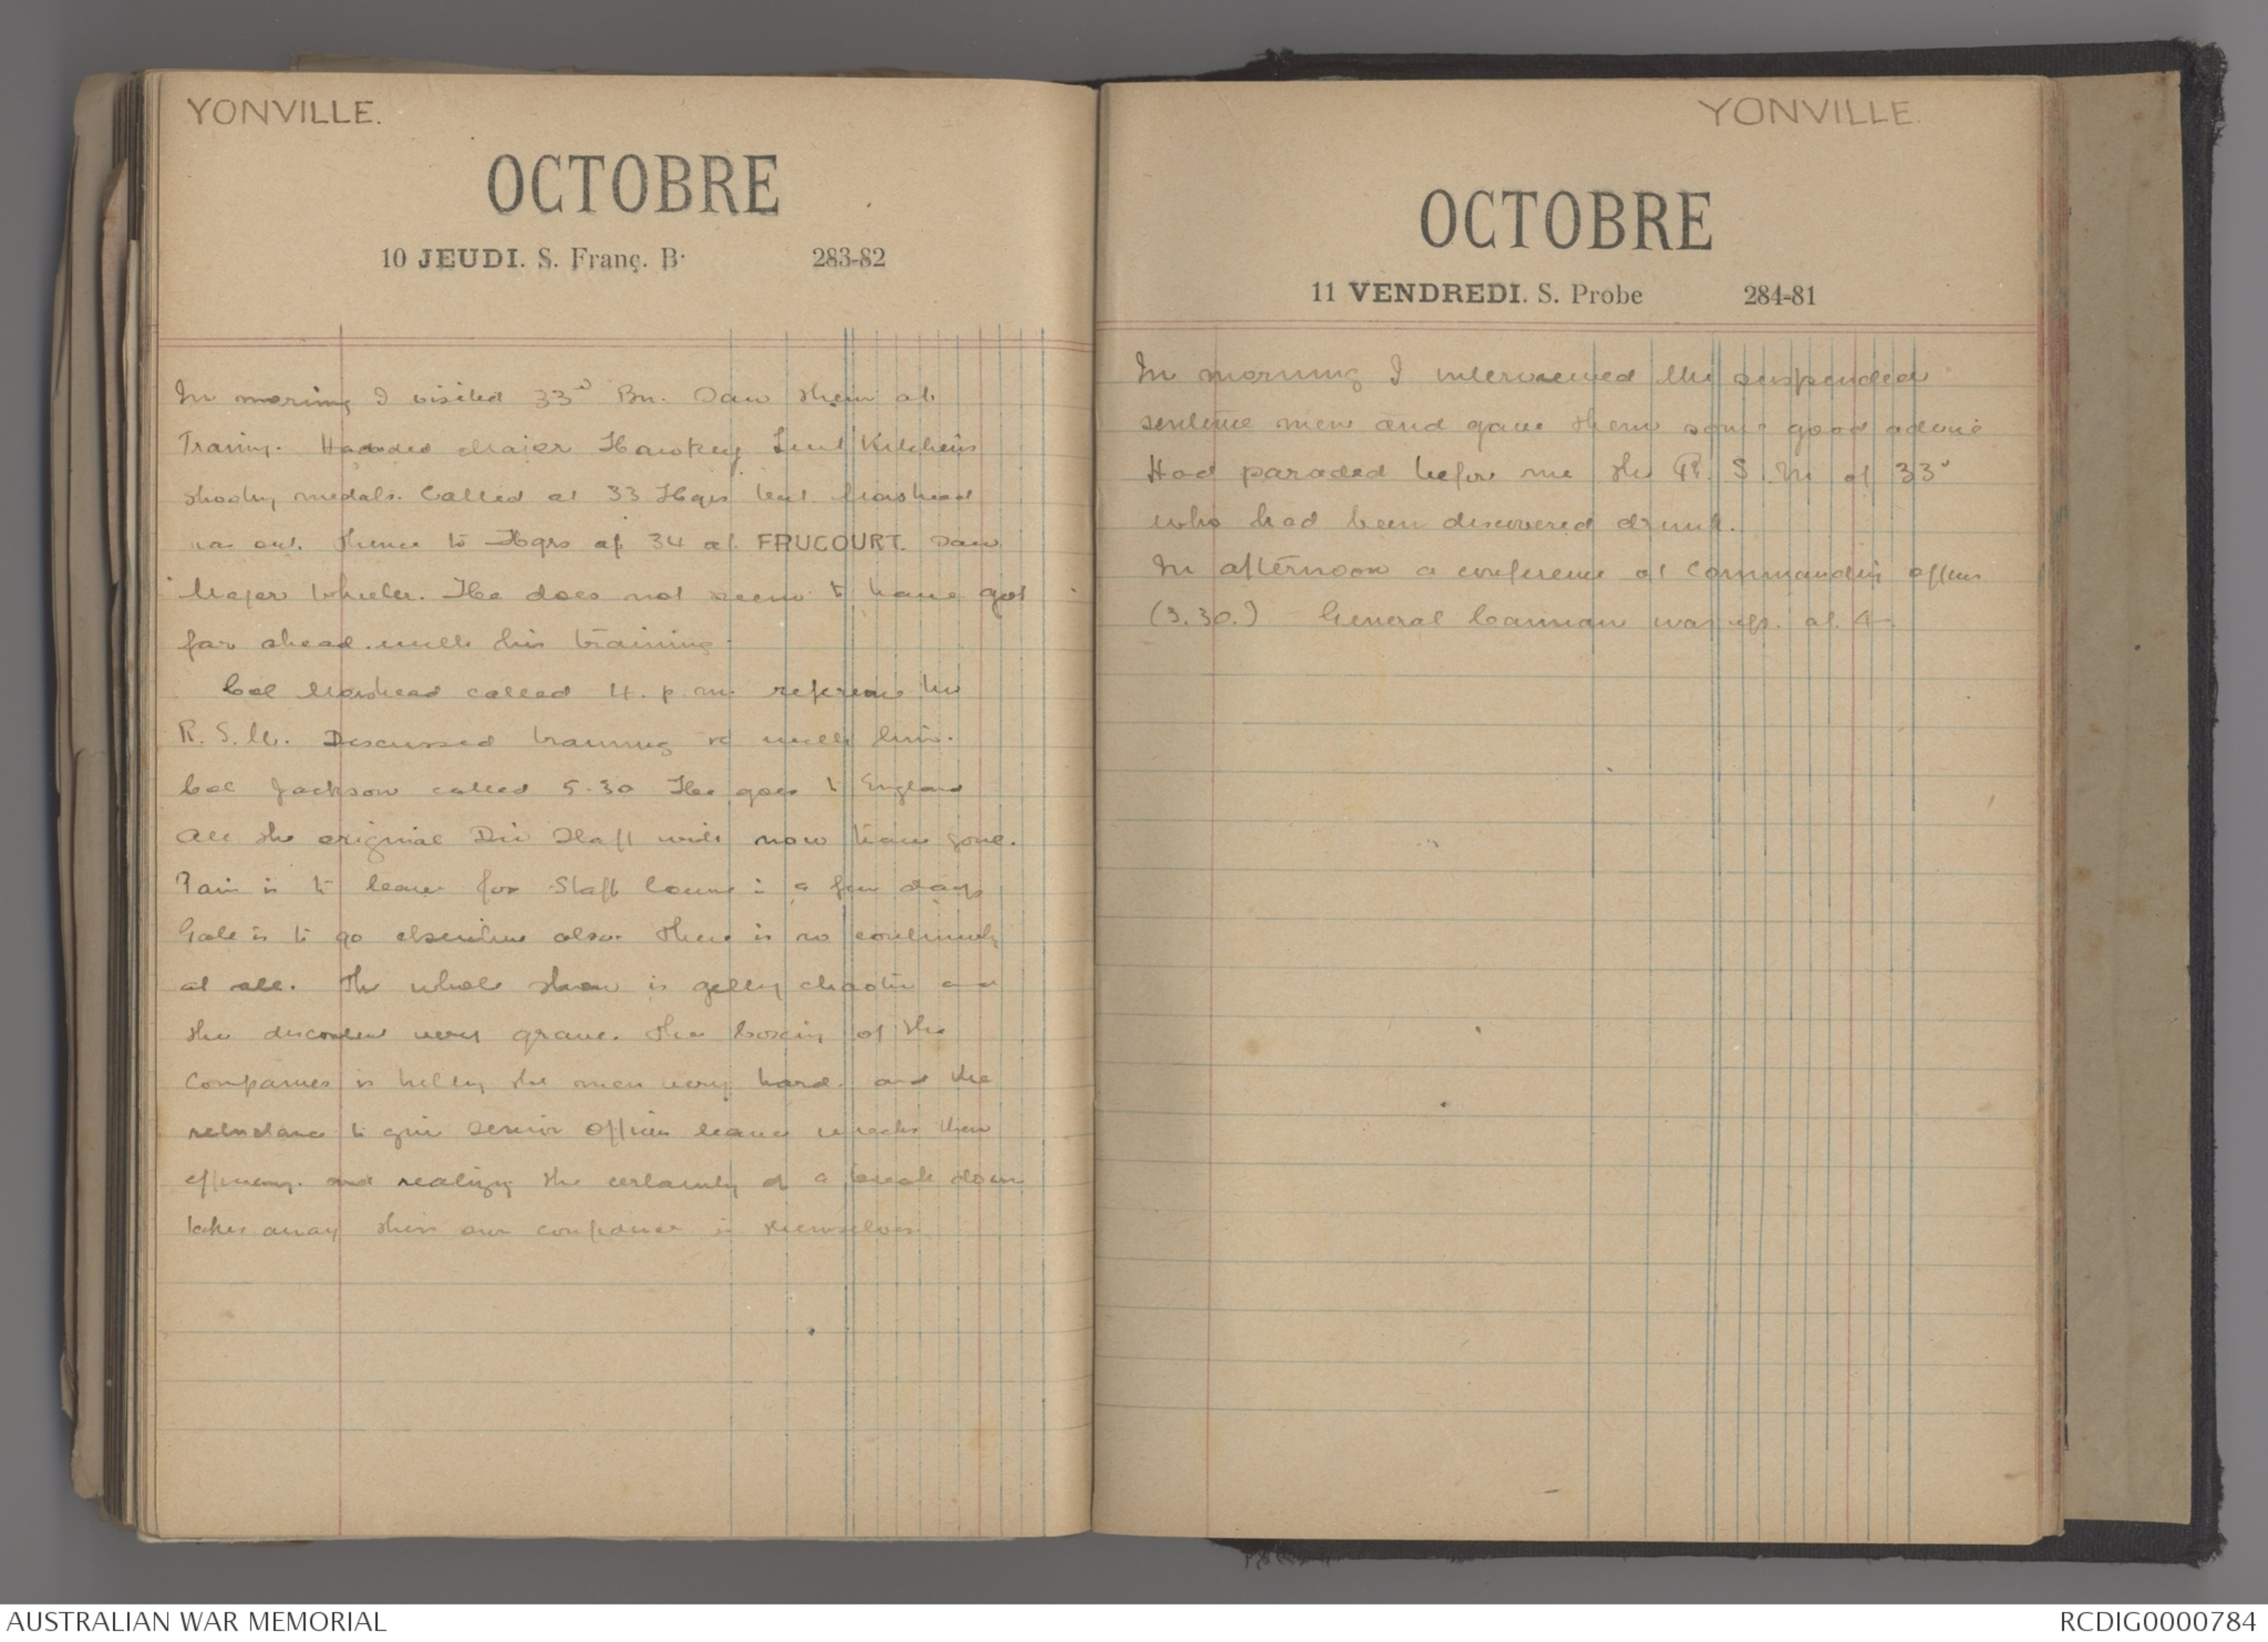 YONVILLE.
OCTOBRE
10 JEUDI. S. Franç. B. 283-82
In morning I visited 33d Bn. Saw them at
Traing. Handed Major Hawkey Lieut Kitcheris
shooting medals. Called at 33 Hqrs but Morshead
was out. Thence to Hqrs of 34 at FRUCOURT. Saw
Major Wheeler. He does not seem to have got
far ahead with his training.
Col Morshead called 4. p.m. reference his
R.S.M. Discussed training with him.
Col Jackson called 5.30 He goes to England
All the original Div Staff will now have gone.
Pain is to leave for Staff Course in a few days
Gale is to go elsewhere also. There is no continuity
at all. The whole show is getting chaotic and
the discontent very grave. The of the
Companies is hitting the men very hard. and the
reluctance to give senior officers leave wrecks their
efficiency. and realizing the certainty of a break down
takes away their own confidence in themselves
YONVILLE.
OCTOBRE
11 VENDREDI. S. Probe 284-81
In morning I interviewed the suspended
sentence men and gave them some good advice
Had paraded before me the R.S.M of 33d
who had been discovered drunk.
In afternoon a conference of Commanding officers
(3.30.) General Cannan was up. at 4.
AUSTRALIAN WAR MEMORIAL
RCDIG0000784